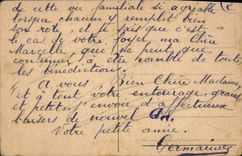 de cette vie familiale si agréable
lorsque chacun y remplit bien
son rôle, et je sais que c'est
le cas de votre foyer, ma Chère
Marcelle, que ne peut que
continuer à être comblé de toutes
les bénédictions.
A vous bien Chère Madame,
et à tout votre entourage, grands
et petits, j'envoie d'affectueux
baisers de nouvel An.
Votre petite amie.
Germaine